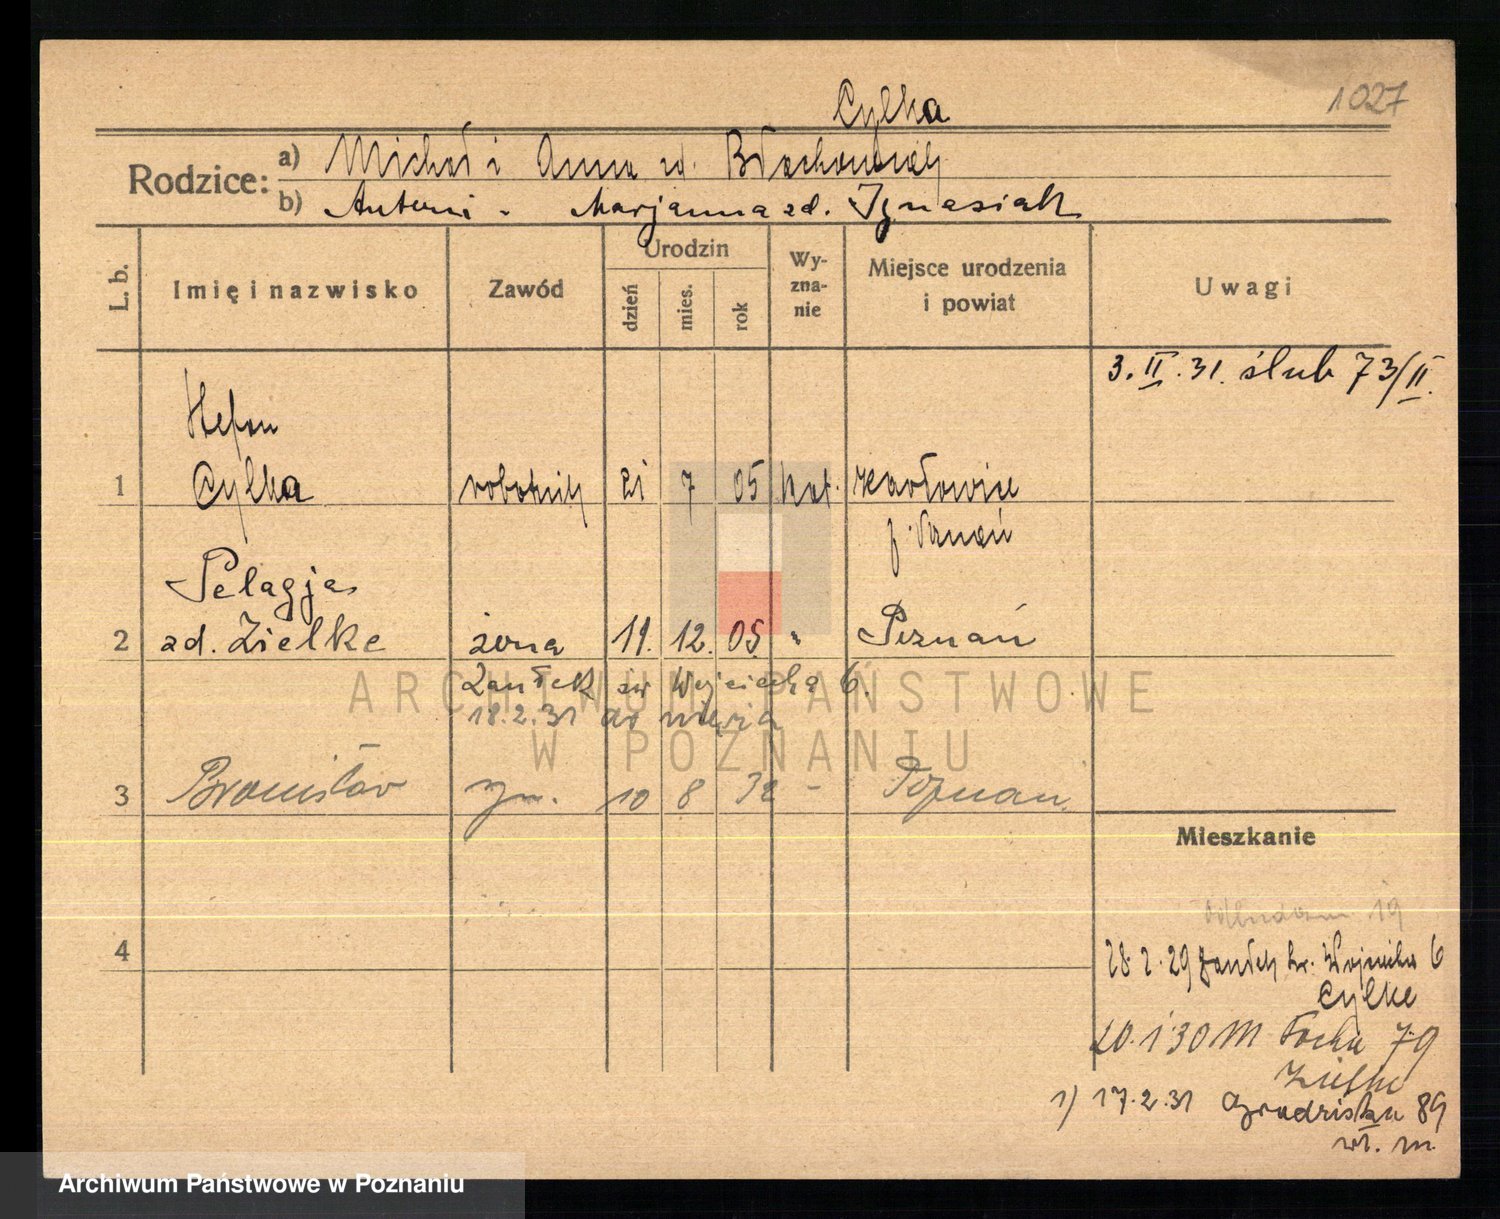 1027
Cylka
Rodzice:
a) Michał i Anna zd. Błachowiak
b) Antoni - Marjanna zd. Ignasiak
L. b.
Imię i nazwisko
Zawód
Urodzin
dzień
mies.
rok
Wy-
zna-
nie
Miejsce urodzenia
i powiat
Uwagi
3. II. 31. ślub 73/II.
Stefan
1 Cylka robotnik 21 7 05 kat. Karłowice
p. Poznań
Pelagja
2 zd. Zielke żona 11. 12. 05. " Poznań
Zaułek św Wojciecha 6.
18.2.31 do męża
3 Bronisław syn. 10 8 32 - Poznań.
Mieszkanie
19
4
28. 2. 29 Zaułek św. Wojciecha 6
Cylke
20. 1 30 M Focha 79
Zielke
1) 17. 2. 31 Grodziska 89
wł. m.
ARCHIWUM PAŃSTWOWE
W POZNANIU
Archiwum Państwowe w Poznaniu